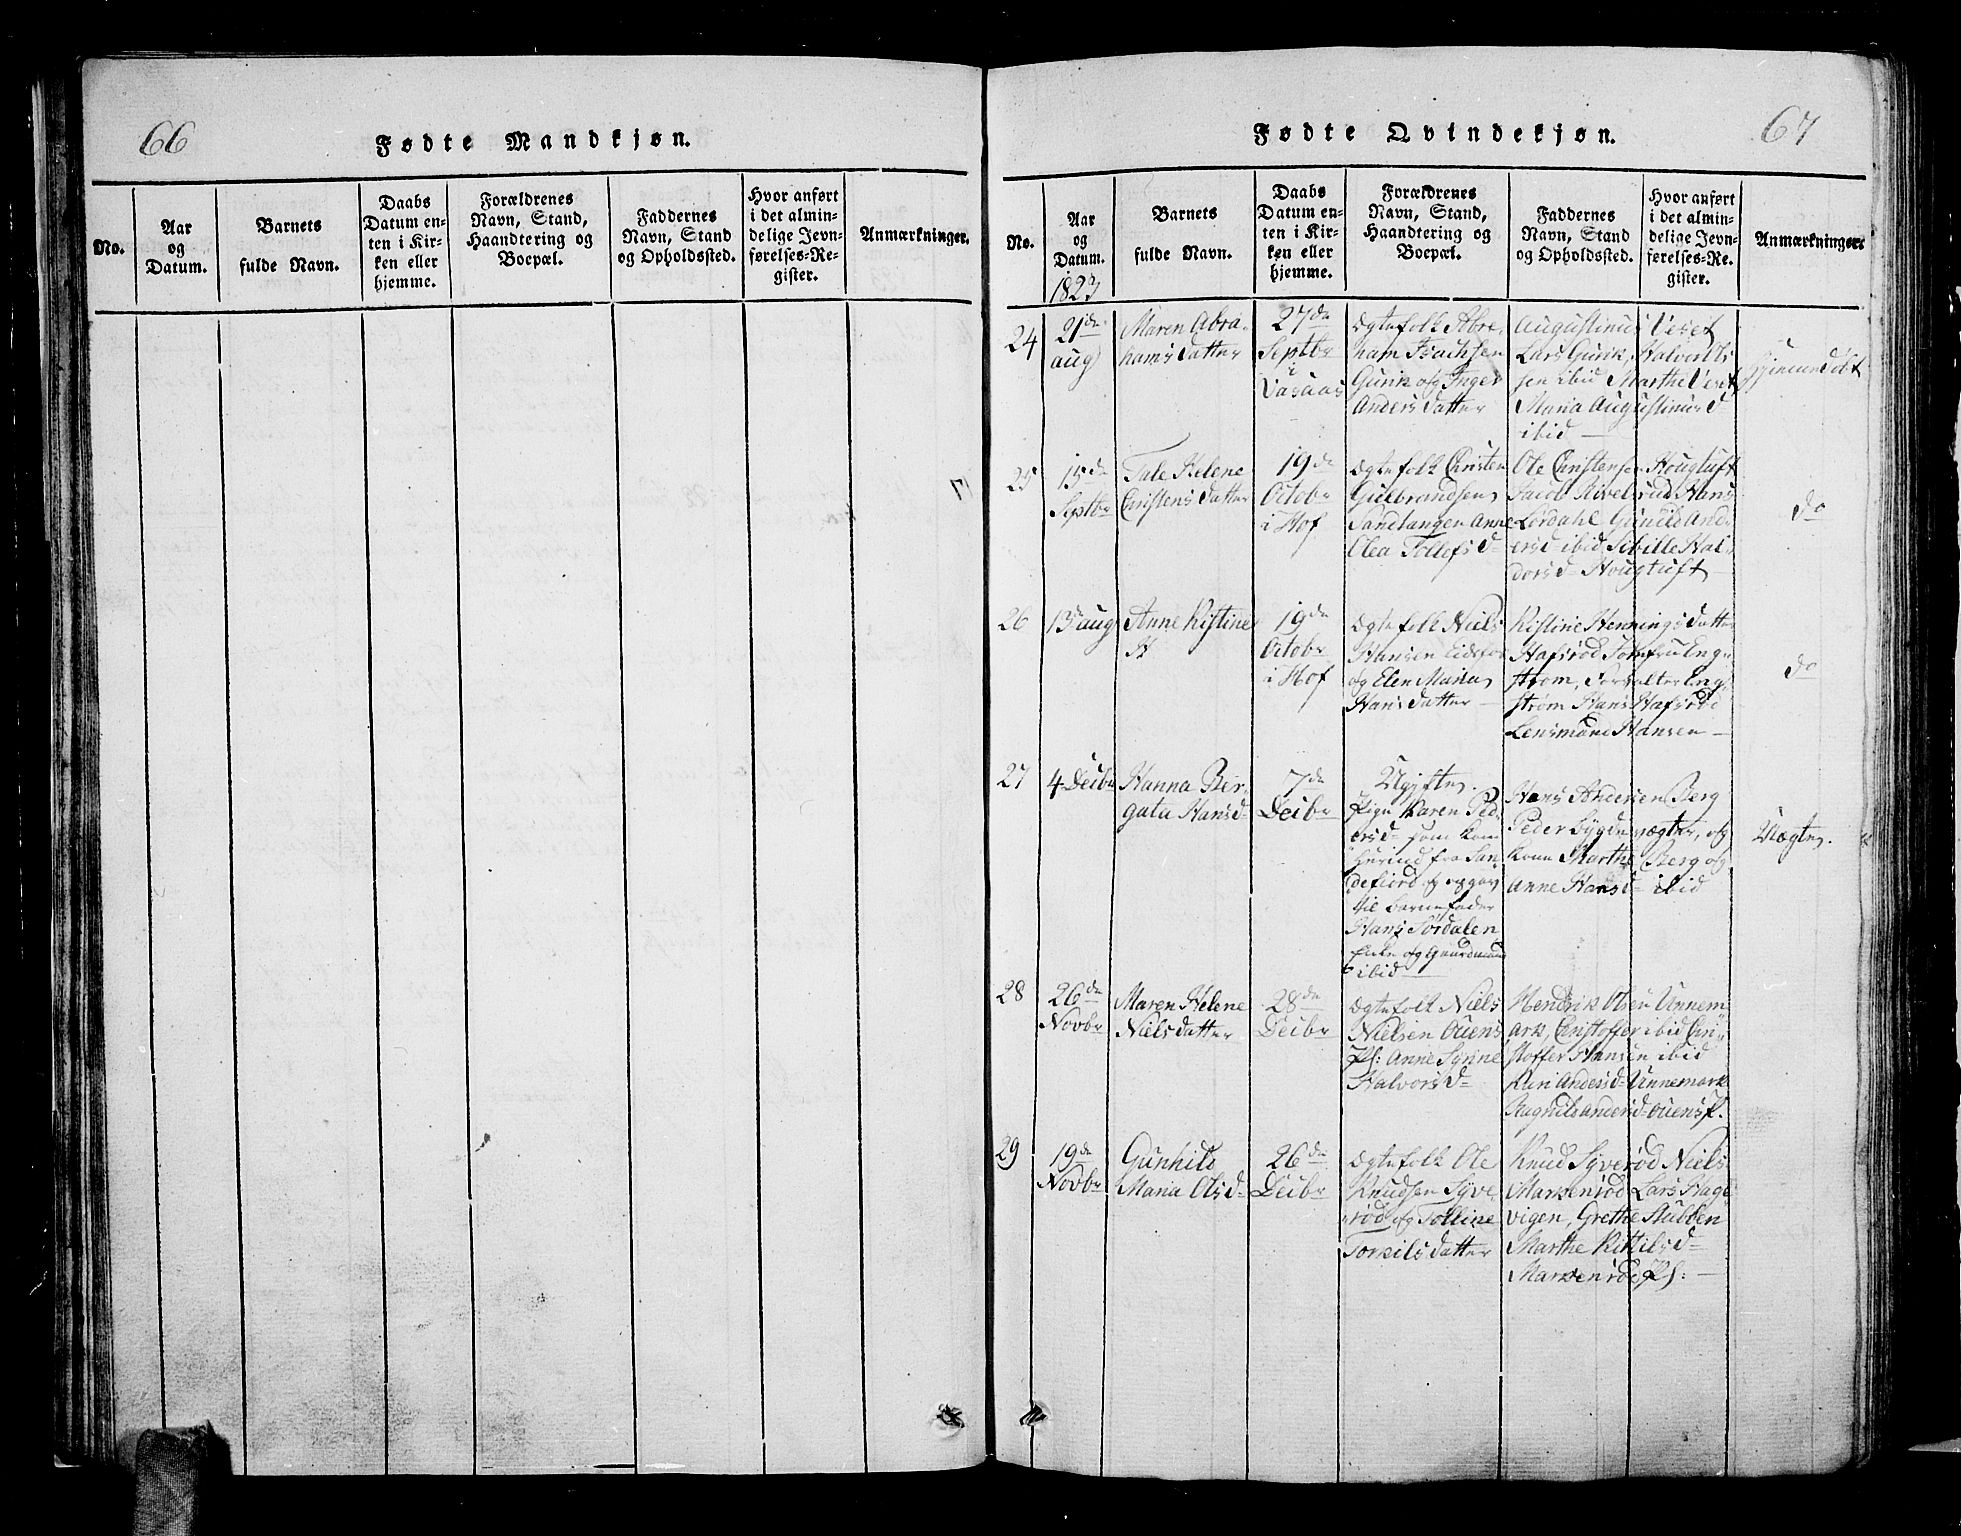 66
Fødte Mandkjøn.
No.
Aar
og
Datum.
Barnets
fulde Navn.
Daabs
Datum en-
ten i Kir-
ken eller
hjemme.
Forældrenes
Navn, Stand,
Haandtering og
Boepæl.
Faddernes
Navn, Stand
og Opholdssted.
Hvor anført
i det almin-
delige Jevn-
førelses-Re-
gister.
Anmærkninger.
Fødte Qvindekjøn.
67
No.
Aar
og
Datum.
1823
Barnets
fulde Navn.
Daabs
Datum en-
ten i Kir-
ken eller
hjemme.
Forældrenes
Navn, Stand,
Haandtering og
Boepæl.
Faddernes
Navn, Stand
og Opholdssted.
Hvor anført
i det almin-
delige Jevn-
førelses-Re-
gister.
Anmærkninger.
24
21de
aug
Maren Abra-
hams datter
27de
Septbr
i
Vasaas
Ægtefolk Abra-
ham Isachsen
Gunik og Inger
Anders datter
Augustinus Veset
Lars Gunik, Halvor
sen ibid Marthe Veset
Maria Augustinus d
ibid
25
15de
Septbr
Tale Helene
Christens datter
19de
Octobr
i Hof
Ægtefolk Christen
Gulbrandsen
Sandtangen Anne
Olea Tollefs d-
Ole Christensen Hougtuft
Jacob Rivelsrud Hans
Lørdahl Gunild And-
ers d- ibid Sibille Hal-
dors d- Hougtuft
do
26
13de aug
Anne Kistine
H
19de
Octobr
i Hof
Ægtefolk Niels
Hansen Eidsfos
og Elen Maria
Hans datter
Kistine Hennings datter
Hafsrød Jomfru Eng-
strøm, Forvalter Eng-
strøm Hans Hafsrød
Lensmand Hansen
do
27
4 Decbr
Hanna Ber-
gata Hans d-
7de
Decbr
Ugifte
Pige Karen Ped-
ers d- som kom
herind fra San-
defiord og opgav
til barnefader
Hans Sørdalen
Enke og Gaardmand
ibid
Hans Andersen Berg
Peder Bygdevægter, og
kone Marthe Berg og
Anne Hans d- ibid
Uægte
28
26de
Novbr
Maren Helene
Niels datter
28de
Decbr
Ægtefolk Niels
Nielsen Ouens
Pl: Anne Synne
Halvors d-
Hendrik Olsen Unnem-
ark, Christoffer ibid Chri-
stoffer Hansen ibid
Kari Anders d- Unnemark
Ragnild anders d- Ouens P.
29
19de
Novbr
Gunhild
Maria Ols d-
26de
Decbr
Ægtefolk Ole
Knudsen Syve
rød og Tolline
Torkils datter
Knud Syverød Niels
Markenrød Lars Hage
vigen, Grethe Stubben
Marthe Kittils d-
Markenrød Pl: